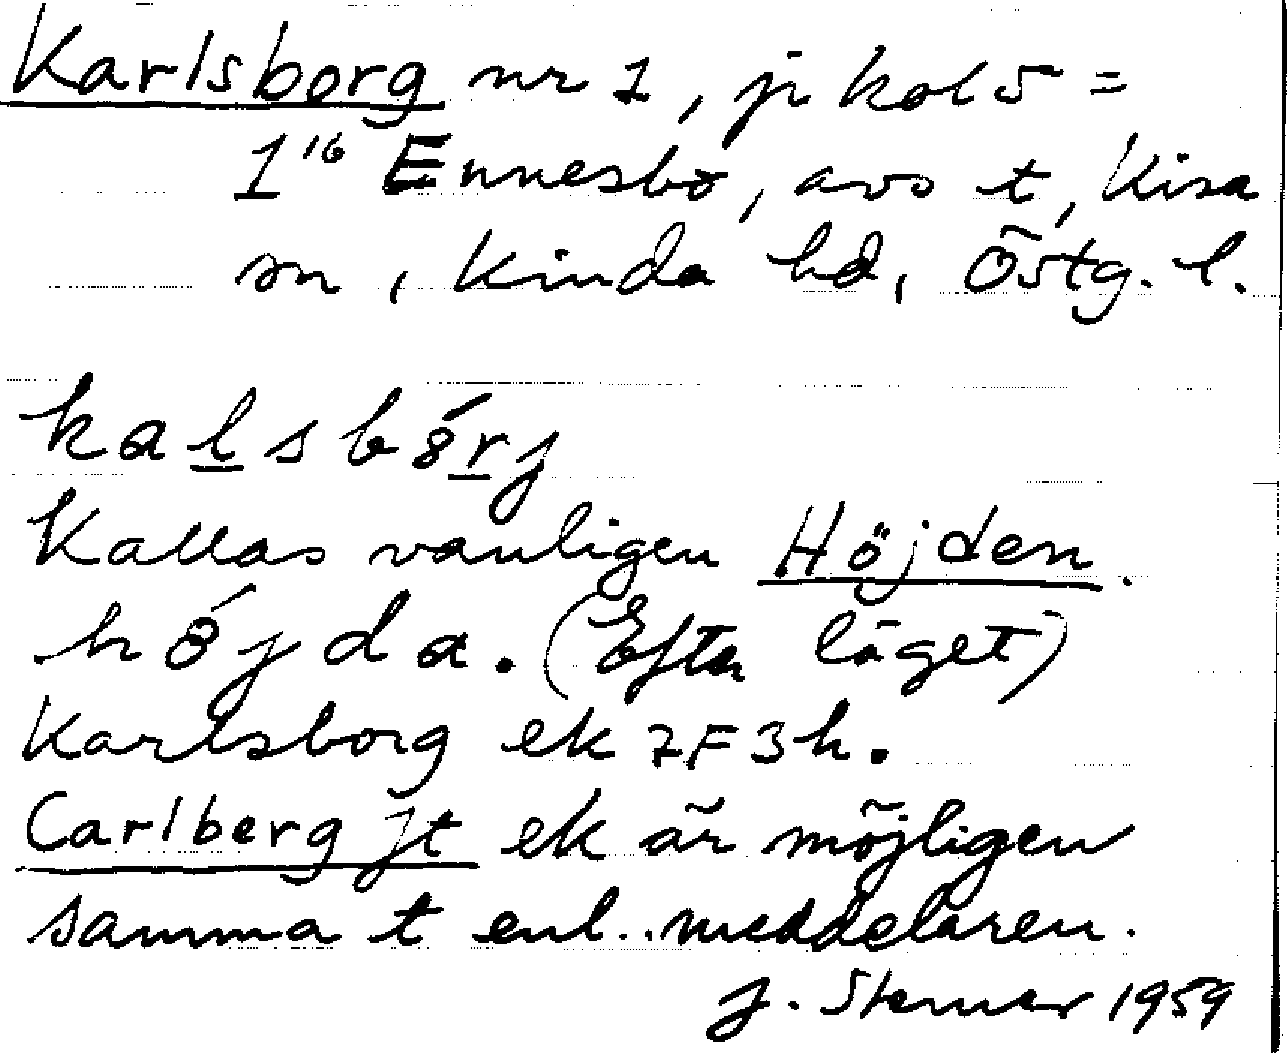 Karlsborg nr 1, jr kol 5 =
1¹⁶ Ennesbo, avs t, Kisa
sn, Kinda hd, Östg. l.
kalsbórj
Kallas vanligen Höjden.
hö́jda. (Efter läget)
Karlsborg ek 7F3h.
Carlberg jt ek är möjligen
samma t enl. meddelaren.
J. Sterner 1959